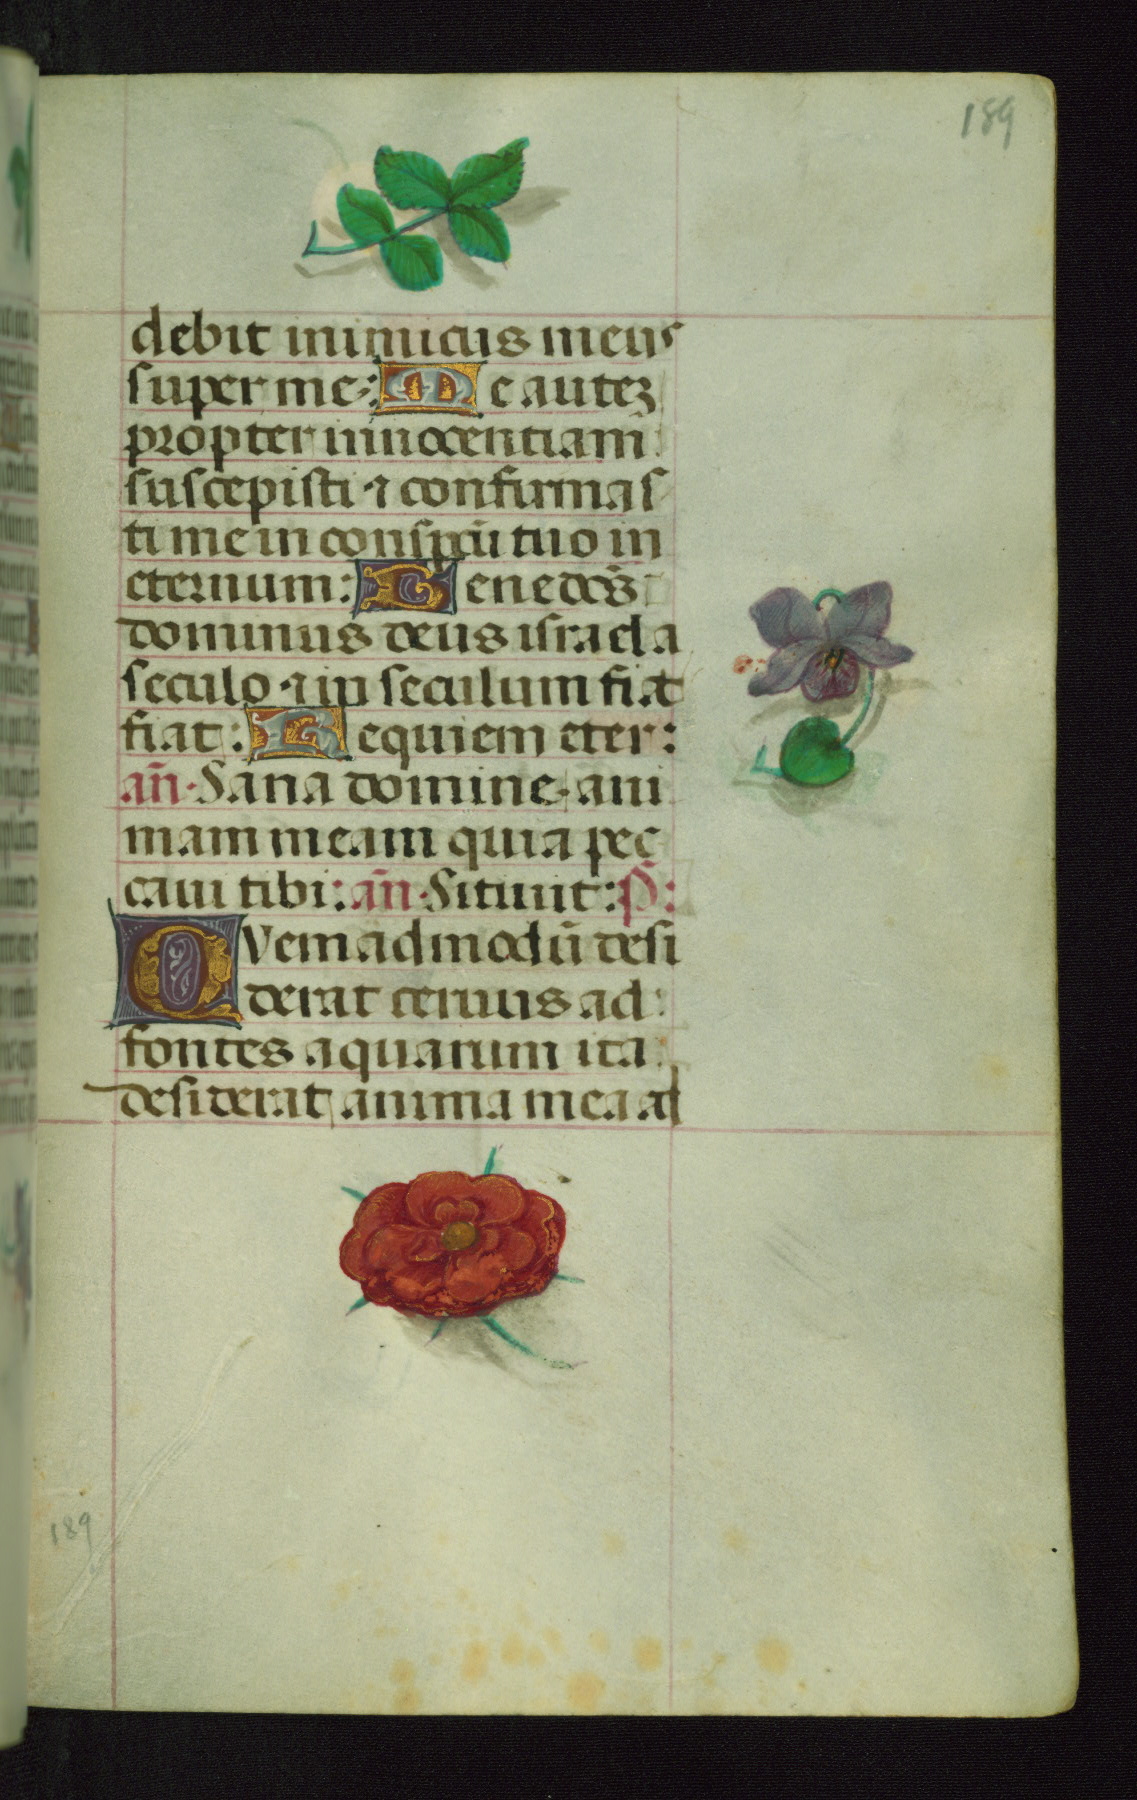 189
debit inimicus meus
super me: Me autez
propter innocentiam
suscepisti ⁊ confirmas
ti me in conspcū tuo in
eternum: Benedcs̄
dominus deus israel a
seculo ⁊ in seculum fiat
fiat: Requiem eter:
an̄. Sana domine ani
mam meam quia pec
caui tibi: an̄. Sitiuit: P̄:
QVemadmodū desi
derat ceruus ad
fontes aquarum ita
desiderat anima mea ad
189